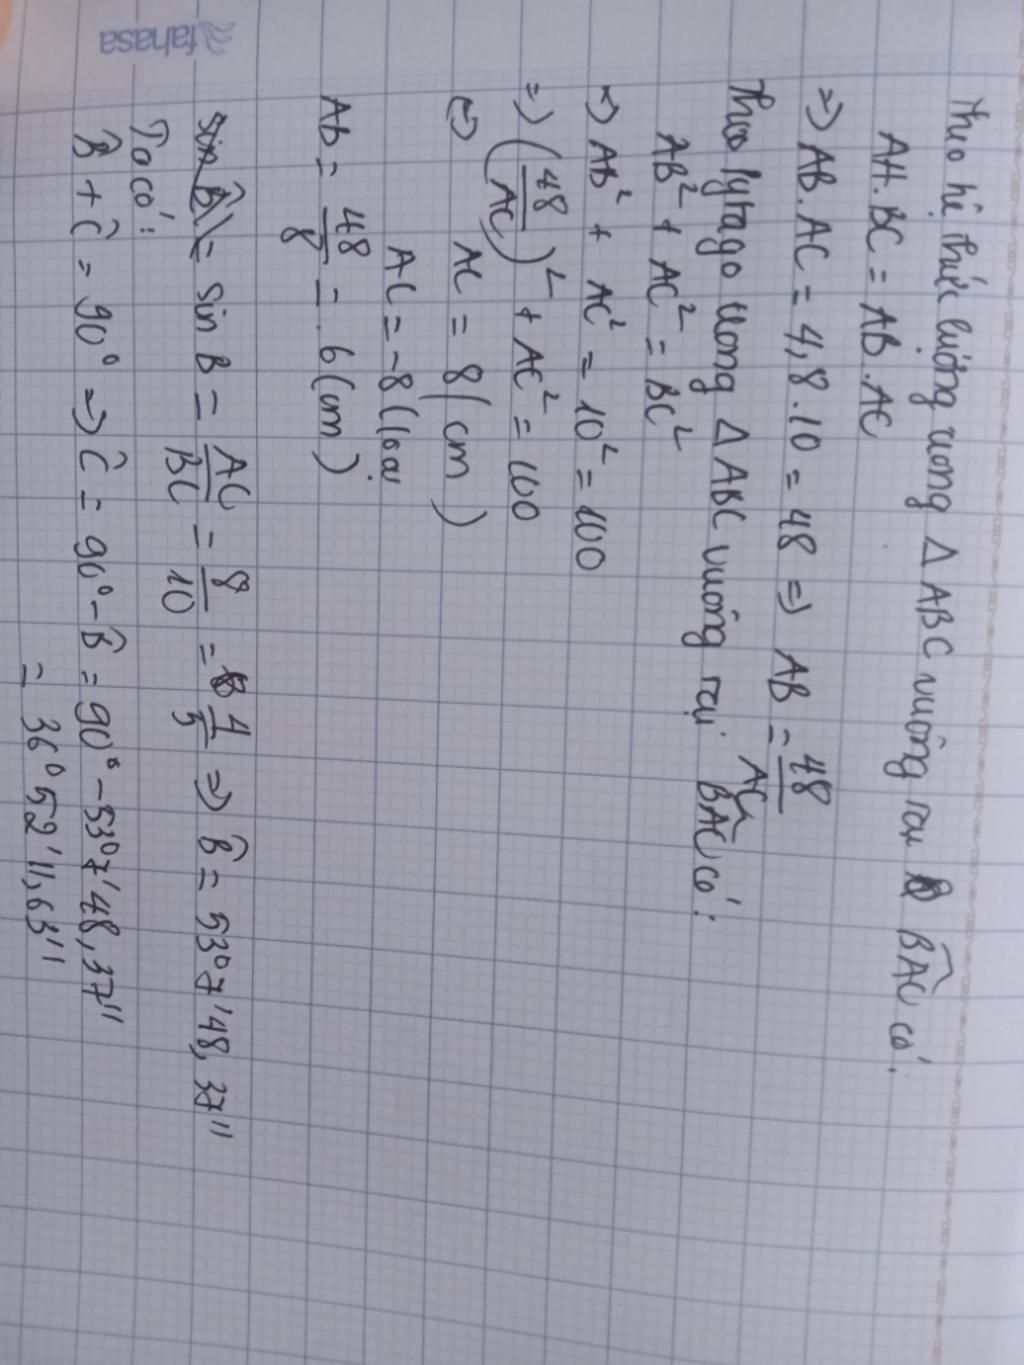 fahasa
Theo hệ thức lượng trong Δ ABC vuông tại BAC có:
AH.BC = AB.AC
=> AB.AC = 4,8.10 = 48 => AB = 48/AC
Theo Pytago trong Δ ABC vuông tại BAC có:
AB² + AC² = BC²
=> AB² + AC² = 10² = 100
=> (48/AC)² + AC² = 100
<=> AC = 8 (cm)
AC = -8 (loại
AB = 48/8 = 6 (cm)
sin B̂ = sin B = AC/BC = 8/10 = 4/5 => B̂ = 53°7'48,37"
Ta có:
B̂ + Ĉ = 90° => Ĉ = 90° - B̂ = 90° - 53°7'48,37"
= 36°52'11,63"